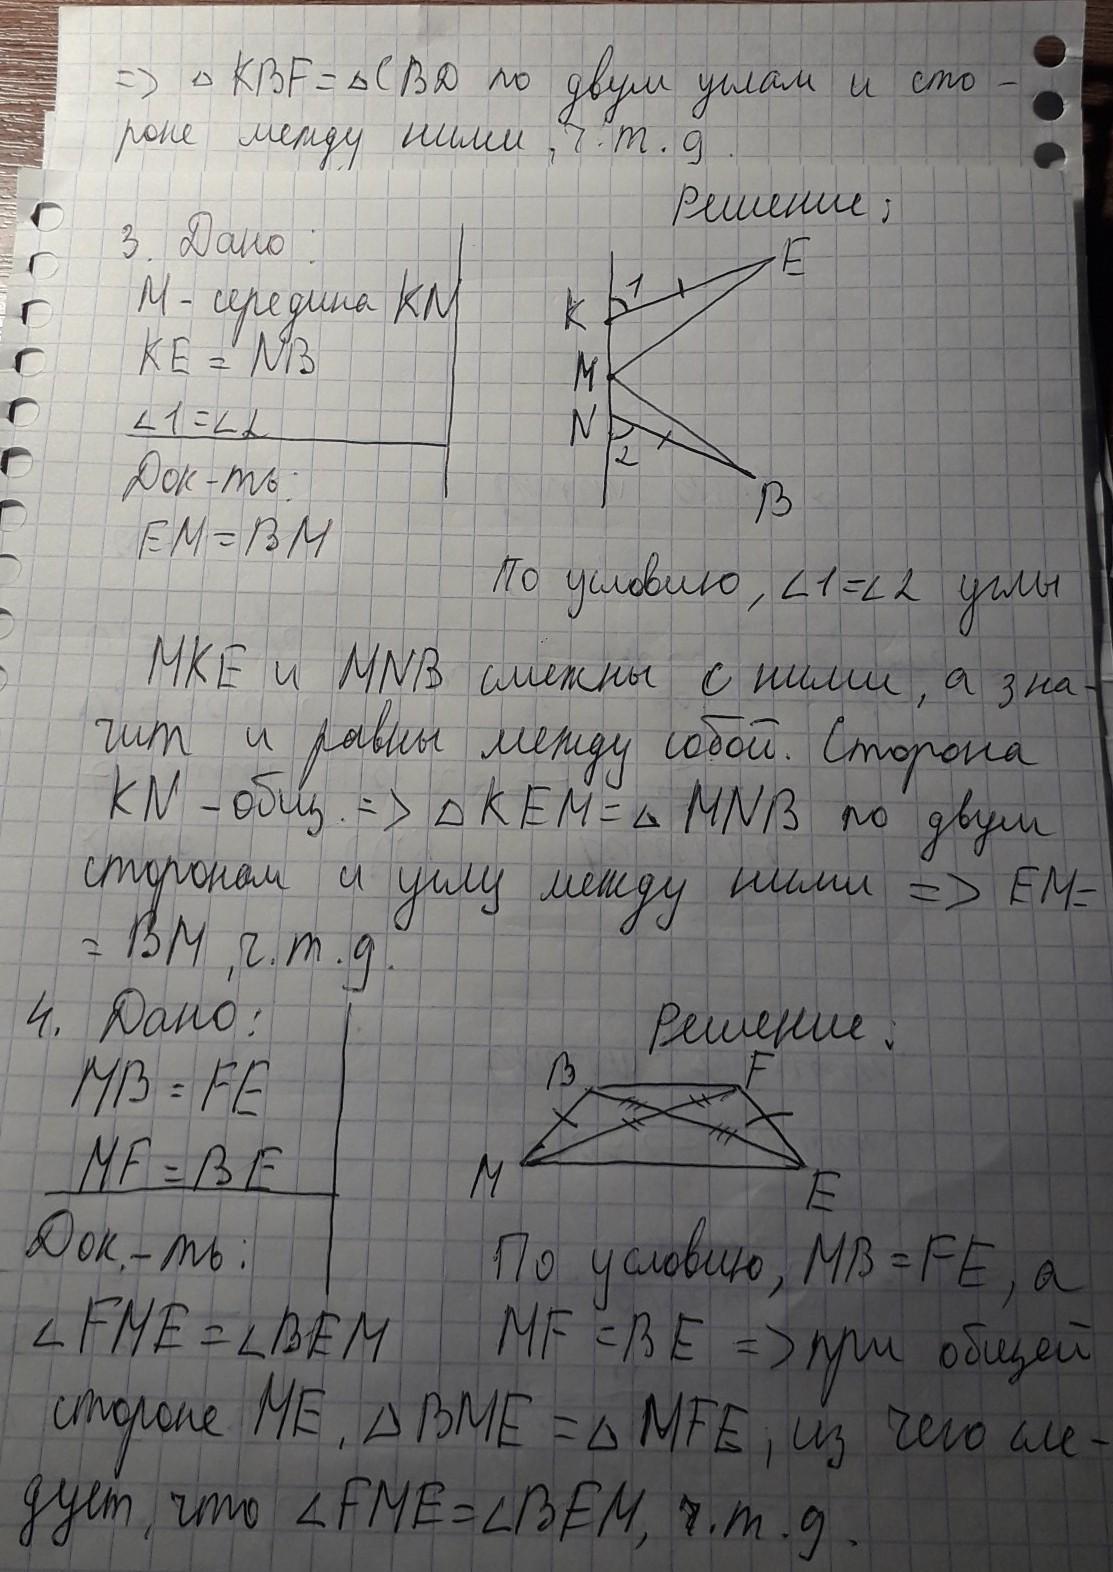 => △KBF=△CBD по двум углам и сто-
роне между ними, ч.т.д.
Решение:
3. Дано:
M - середина KN
KE = NB
∠1=∠2
Док-ть:
EM=BM
E
1
K
M
N
2
B
По условию, ∠1=∠2 углы
MKE и MNB смежны с ними, а зна-
чит и равны между собой. Сторона
KN - общ. => △KEM=△MNB по двум
сторонам и углу между ними => EM=
= BM, ч.т.д.
4. Дано:
MB = FE
MF = BE
Док.-ть:
∠FME=∠BEM
Решение:
B F
M E
По условию, MB=FE, а
MF=BE => при общей
стороне ME, △BME=△MFE, из чего сле-
дует, что ∠FME=∠BEM, ч.т.д.